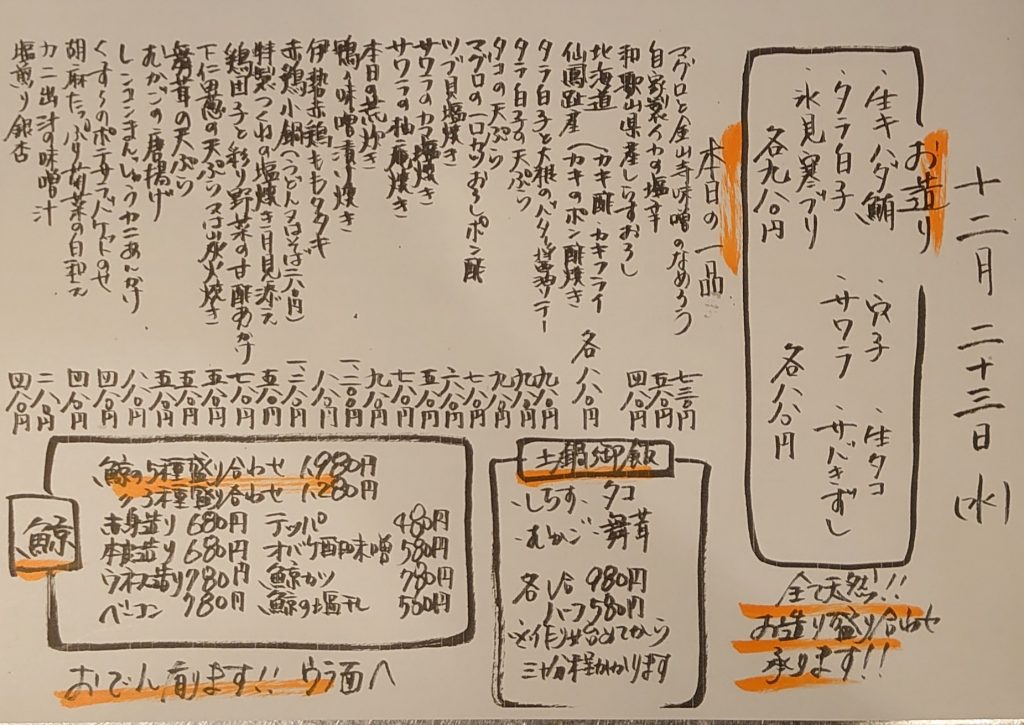 十二月二十三日(水)
お造り
・生キハダ鮪 ・穴子 ・生タコ
・タラ白子 ・サワラ ・サバきずし
・氷見寒ブリ
各九八〇円 各八八〇円
全て天然!!
お造り盛り合わせ
承ります!!
本日の一品
マグロと金山寺味噌のなめろう 七三〇円
自家製イカの塩辛 五八〇円
和歌山県産しらすおろし 四八〇円
北海道(カキ酢 カキフライ
仙鳳趾産(カキのポン酢焼き 各八八〇円
タラ白子と大根のバター醤油ソテー 九八〇円
タラ白子の天ぷら 九八〇円
タコの天ぷら 九八〇円
マグロの一口カツおろしポン酢 七八〇円
ツブ貝塩焼き 六八〇円
サワラのカマ塩焼き 五八〇円
サワラの柚庵焼き 七八〇円
本日の荒炊き 九八〇円
鴨の味噌漬け焼き 一、二〇〇円
伊勢赤鶏ももタタキ 八八〇円
赤鶏小鍋(うどん又はそば二八〇円) 一、二八〇円
特製つくねの塩焼き月見添え 五八〇円
鶏団子と彩り野菜の甘酢あんかけ 七八〇円
下仁田葱の天ぷら又は炭火焼き 五八〇円
舞茸の天ぷら 五八〇円
むかごの唐揚げ 五八〇円
レンコンまんじゅうカニあんかけ 八八〇円
くすくすのポテサラバケットのせ 四八〇円
胡麻たっぷり菊菜の白和え 四八〇円
カニ出汁の味噌汁 二八〇円
塩煎り銀杏 四八〇円
土鍋御飯
・しらす ・タコ
・むかご ・舞茸
各 一合 980円
ハーフ 580円
※作り始めてから
三十分程かかります
鯨
鯨の5種盛り合わせ 1,980円
〃3種盛り合わせ 1,280円
赤身造り 680円 テッパ 480円
本皮造り 680円 オバケ酢味噌 580円
ウネス造り 780円 鯨カツ 780円
ベーコン 780円 鯨の塩干し 580円
おでん有ります!! ウラ面へ